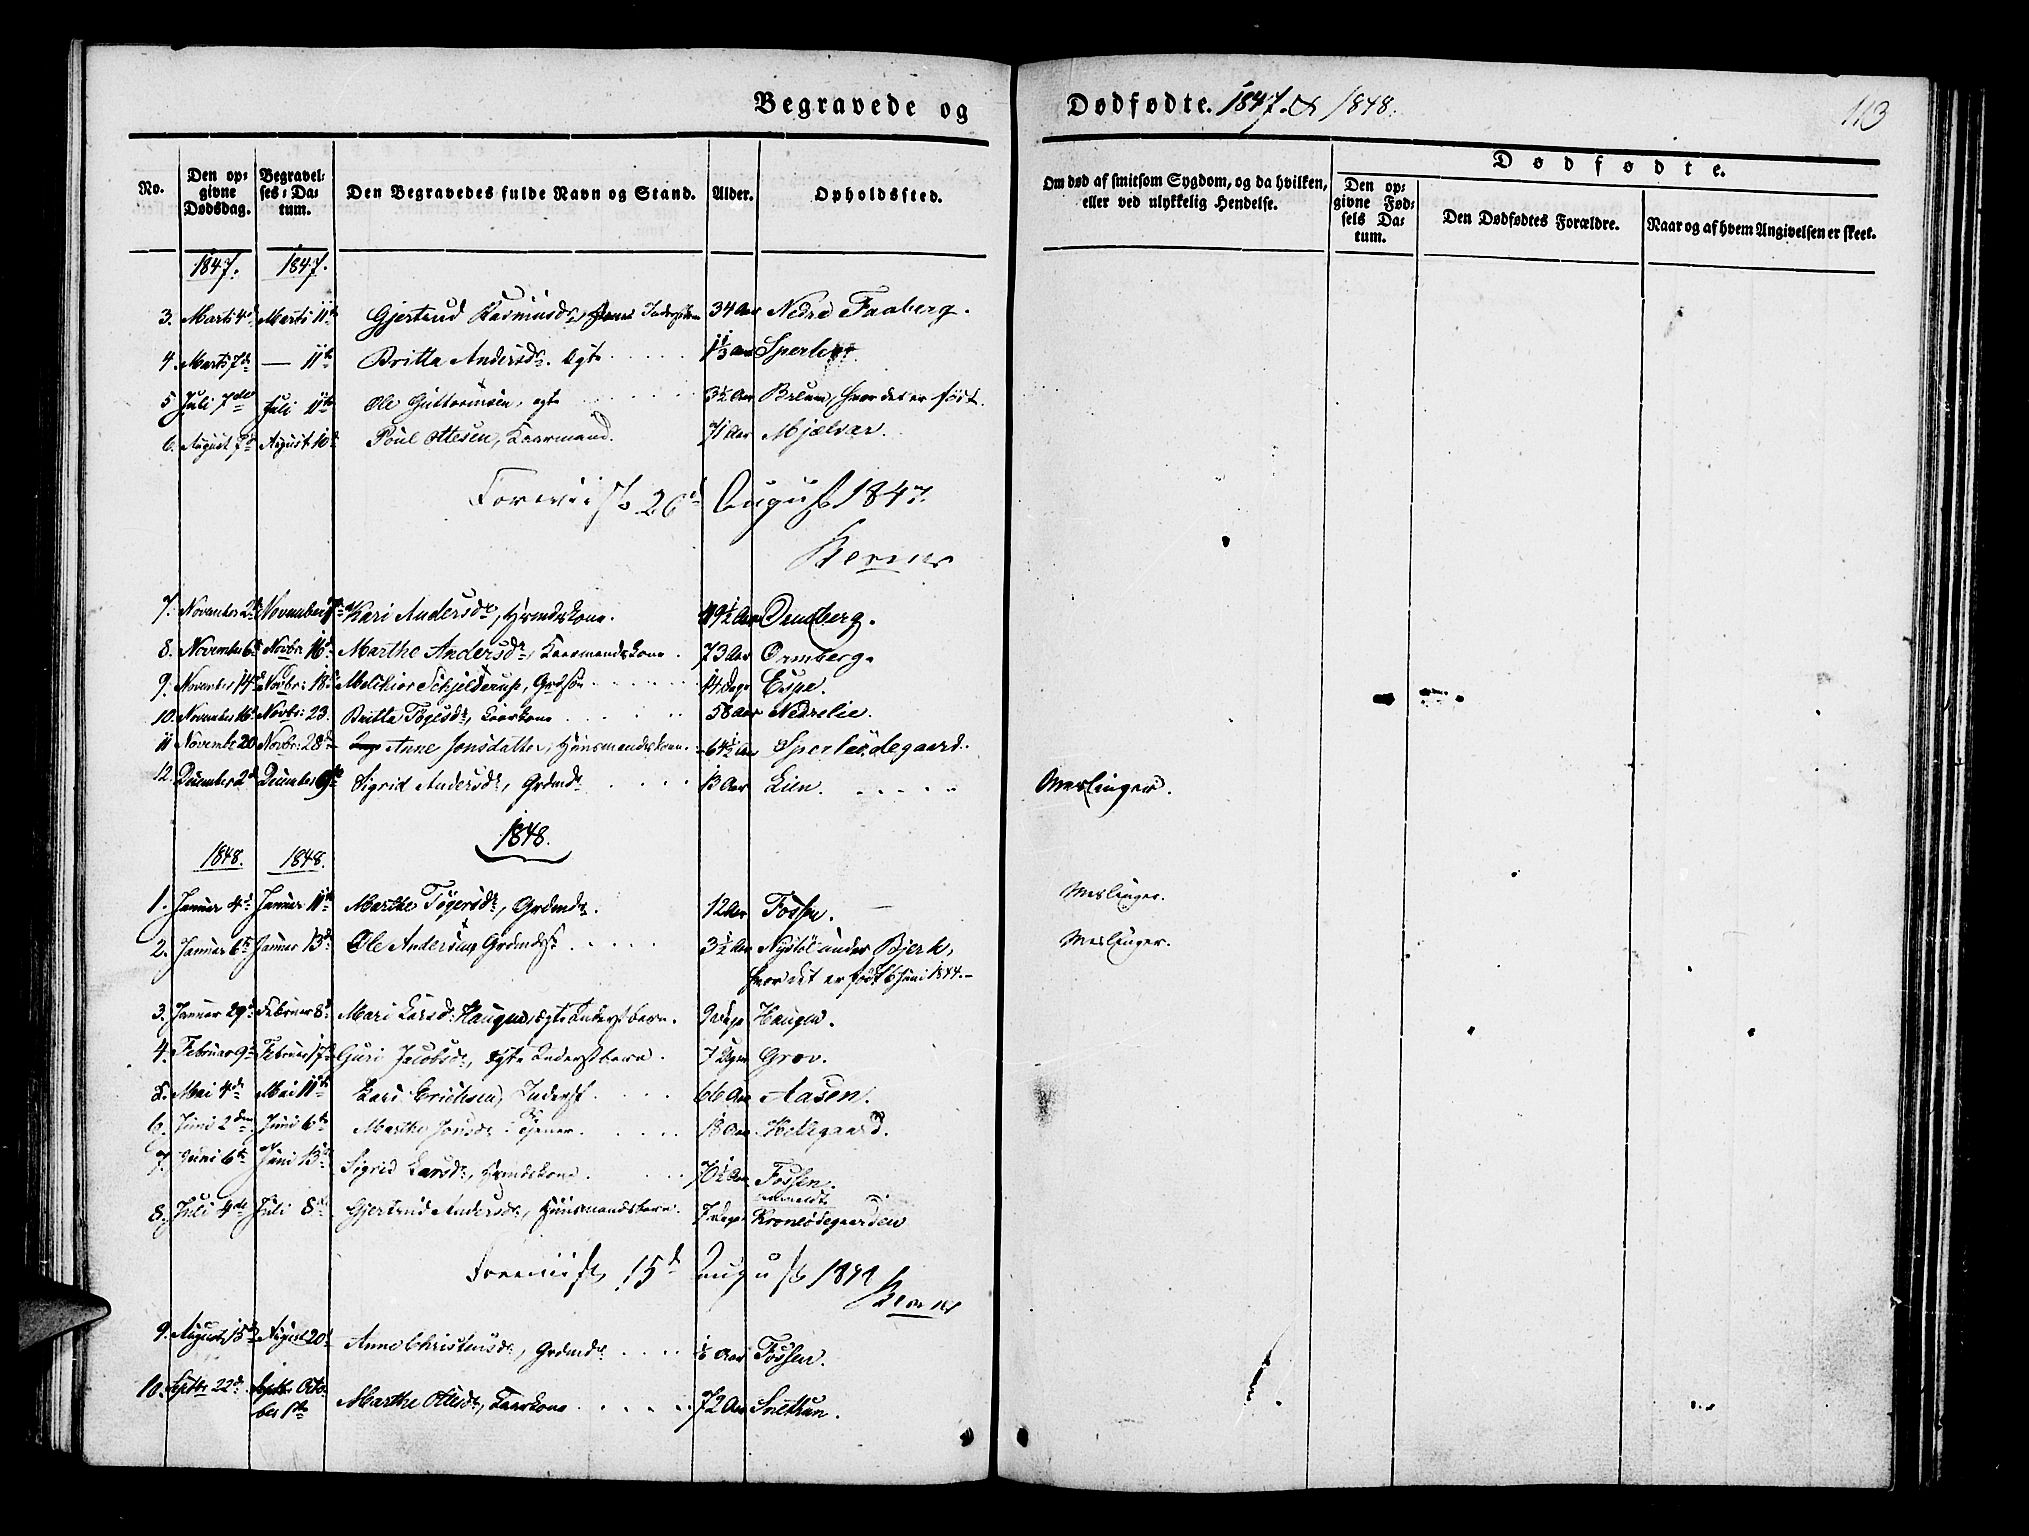 Begravede og Dødfødte. 1847. & 1848. 113
No. Den opgivne Dødsdag. Begravelses-Datum. Den Begravedes fulde Navn og Stand. Alder. Opholdssted. Om død af smitsom Sygdom, og da hvilken, eller ved ulykkelig Hendelse. Dødfødte. Den opgivne Fødsels Datum. Den Dødfødtes Forældre. Naar og af hvem Angivelsen er skeet.
1847. 1847.
3. Marts 4d Marts 11te Gjertrud Rasmusdr, 34 Aar Nedre Faaberg.
4. Marts 7de — 11te Britta Andersdr. Ægte 1⅓ Aar
5 Juli 7de Juli 11te Ole Guttormsen, ægte 3½ Aar hvor det er født.
6. August 7d August 10d Poul Ottesen, Kaarmand. 71 Aar Mjelvær.
Foreviist 26d August 1847.
7. November 2d November Kari Andersdr, Grmdskone. 49½ Aar
8. November 6te Novbr 16d Marthe Andersdr, Kaarmandskone. 73 Aar Ormberg.
9. November 14d Novbr: 18d Melchior Schjelderup, Grdssøn 14 Dage Espe.
10. November 16d Novbr: 23. Britta Tøgersdr, Kaarkone 58 Aar Nedrelie.
11 November 20 Novbr: 28d Anne Jonsdatter, Huusmandskone. 64½ Aar Sperleødegaard.
12. December 2d December 9de Sigrid Andersdr, Grdmdr 13 Aar Lien. Meslinger.
1848.
1848. 1848.
1. Januar 4d Januar 11te Marthe Tøgersdr, Grdmdr. 12 Aar Fossen. Meslinger.
2. Januar 6te Januar 13d Ole Andersen, Grdmdss 3½ Aar Nystøl under Bjerk, Meslinger.
hvor det er født 6 Juni 1844.-
3. Januar 29d Februar 8d Mari Larsd: Haugen, ægte Inderstbarn. 9 Dage Haugen.
4. Februar 9d Februar 17d Guri Jacobsdr, ægte Inderstbarn. 7 Uger Grov.
5. Mai 4de Mai 11te Lars Erichsen, Inderst 66 Aar Aasen.
6. Juni 2den Juni 6te Marthe Jonsdr Tjener 18 Aar Hellegaard.
7. Juni 6te Juni 13d Sigrid Larsdr, Grmdskone 70½ Aar Fossen.
8. Juli 4de Juli 8de Gjertrud Andersdr, Huusmandsbarn. 7 Dage Kroneødegaarden
Foreviist 15d August 1848
9. August 15d August 20d Anne Christensdr, Grdmdr Aar Fossen.
10. Septbr 22d Octo-
ber 1ste Marthe Ottesdr, Kaarkone 72 Aar Snetun.